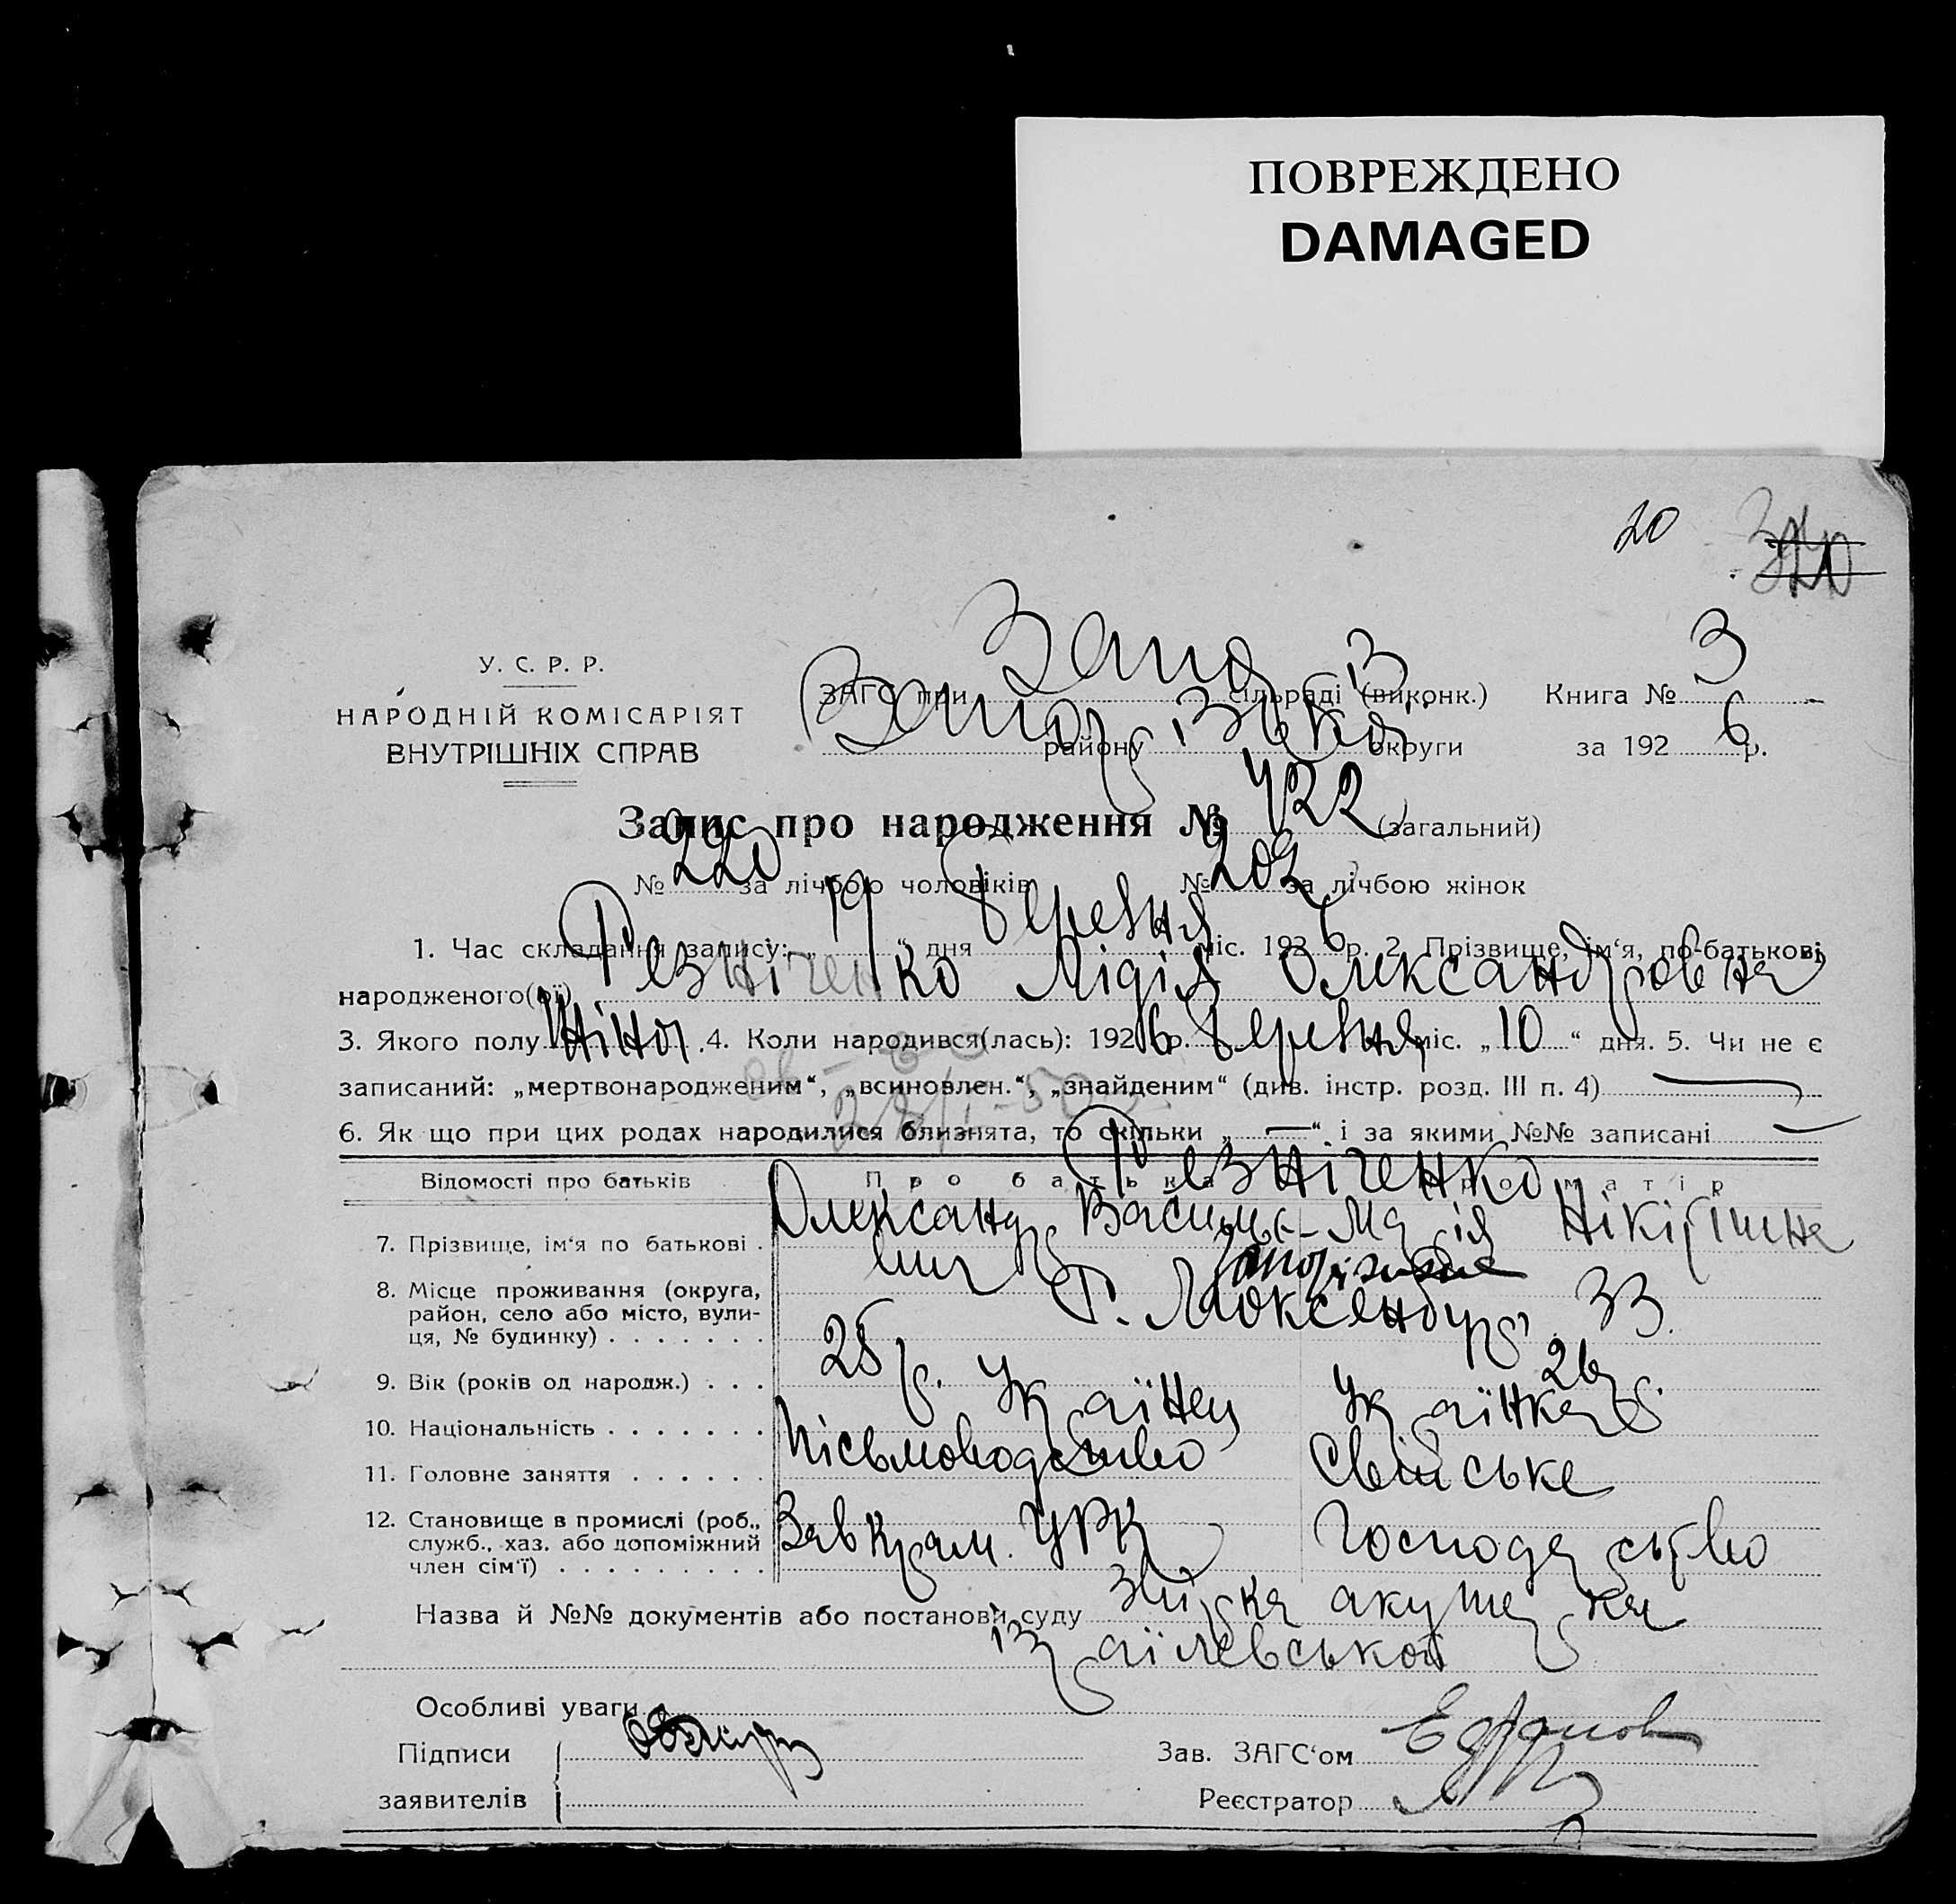 ПОВРЕЖДЕНО
DAMAGED
20
У. С. Р. Р.
НАРОДНІЙ КОМІСАРІЯТ
ВНУТРІШНІХ СПРАВ
ЗАГС при Запоріз сільраді (виконк.) Книга № 3
Запорізької району округи за 1926 р.
Запис про народження № 422 (загальний)
№ 220 за лічбою чоловіків № 202 за лічбою жінок
1. Час складання запису: „19“ дня Березня міс. 1926 р. 2. Прізвище, ім‘я, по-батькові
народженого(ої) Резніченко Лідія Олександровна
3. Якого полу Жіноч. 4. Коли народився(лась): 1926 р. Березня міс. „10“ дня. 5. Чи не є
записаний: „мертвонародженим“, „всиновлен.“, „знайденим“ (див. інстр. розд. III п. 4)
6. Як що при цих родах народилися близнята, то скільки „—“ і за якими №№ записані —
Відомості про батьків Про батька Про матір
Резніченко
7. Прізвище, ім‘я по батькові . Олександр Василье- Марія Нікітішна
вич
8. Місце проживання (округа, район, село або місто, вулиця, № будинку) . . . . . . . Р. Люксенбург 33.
9. Вік (років од народж.) . . . 25 р. 26 р.
10. Національність . . . . . . . Українец Українка
11. Головне заняття . . . . . . Пісьмоводство Свійське
12. Становище в промислі (роб., служб., хаз. або допоміжний член сім‘ї) . . . . . . . . . Завкрам. УРК Господарство
Назва й №№ документів або постанови суду Акушерка
Ізраїлевської
Особливі уваги
Підписи
заявителів
Зав. ЗАГС‘ом
Реєстратор